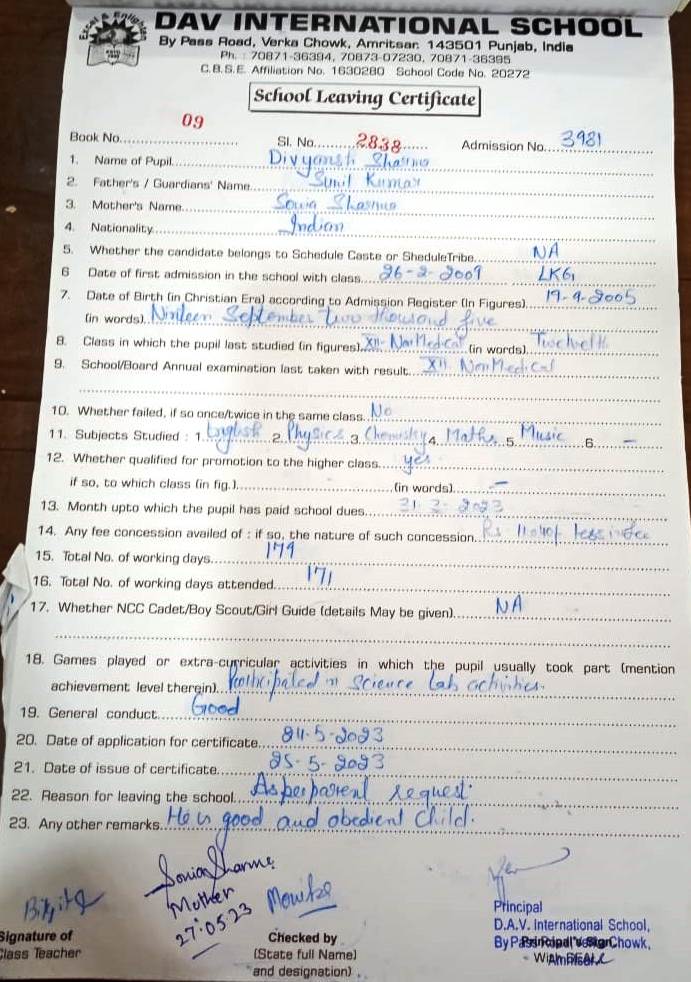 DAV INTERNATIONAL SCHOOL
By Pass Road, Verka Chowk, Amritsar. 143501 Punjab, India
Ph. : 70871-36394, 70873-07230, 70871-36395
C.B.S.E. Affiliation No. 1630280 School Code No. 20272
School Leaving Certificate
Book No. 09 Sl. No. 2838 Admission No. 3981
1. Name of Pupil Divyansh Sharma
2. Father's / Guardians' Name Sunil Kumar
3. Mother's Name Sonia Sharma
4. Nationality Indian
5. Whether the candidate belongs to Schedule Caste or SheduleTribe NA
6 Date of first admission in the school with class 26-2-2009 LKG
7. Date of Birth (in Christian Era) according to Admission Register (In Figures) 19-9-2005
(in words) Ninteen September two thousand five
8. Class in which the pupil last studied (in figures) XII-NonMedical (in words) Twelveth
9. School/Board Annual examination last taken with result XII NonMedical
10. Whether failed, if so once/twice in the same class No
11. Subjects Studied : 1. English 2. Physics 3. Chemistry 4. Maths 5. Music 6. -
12. Whether qualified for promotion to the higher class yes
if so, to which class (in fig.) (in words) -
13. Month upto which the pupil has paid school dues 31-3-2023
14. Any fee concession availed of : if so, the nature of such concession. Rs less in fee
15. Total No. of working days 179
16. Total No. of working days attended 171
17. Whether NCC Cadet/Boy Scout/Girl Guide (details May be given) NA
18. Games played or extra-curricular activities in which the pupil usually took part (mention
achievement level therein) Participated in Science lab activities.
19. General conduct Good
20. Date of application for certificate 24-5-2023
21. Date of issue of certificate 25-5-2023
22. Reason for leaving the school As per parent request.
23. Any other remarks He is good and obedient child.
Sonia Sharma
Mother
27.05.23
Signature of
Class Teacher
Checked by
(State full Name)
and designation)
Principal
D.A.V. International School,
By Pass Road, Verka Chowk,
Amritsar
Principal's Sign
With SEAL